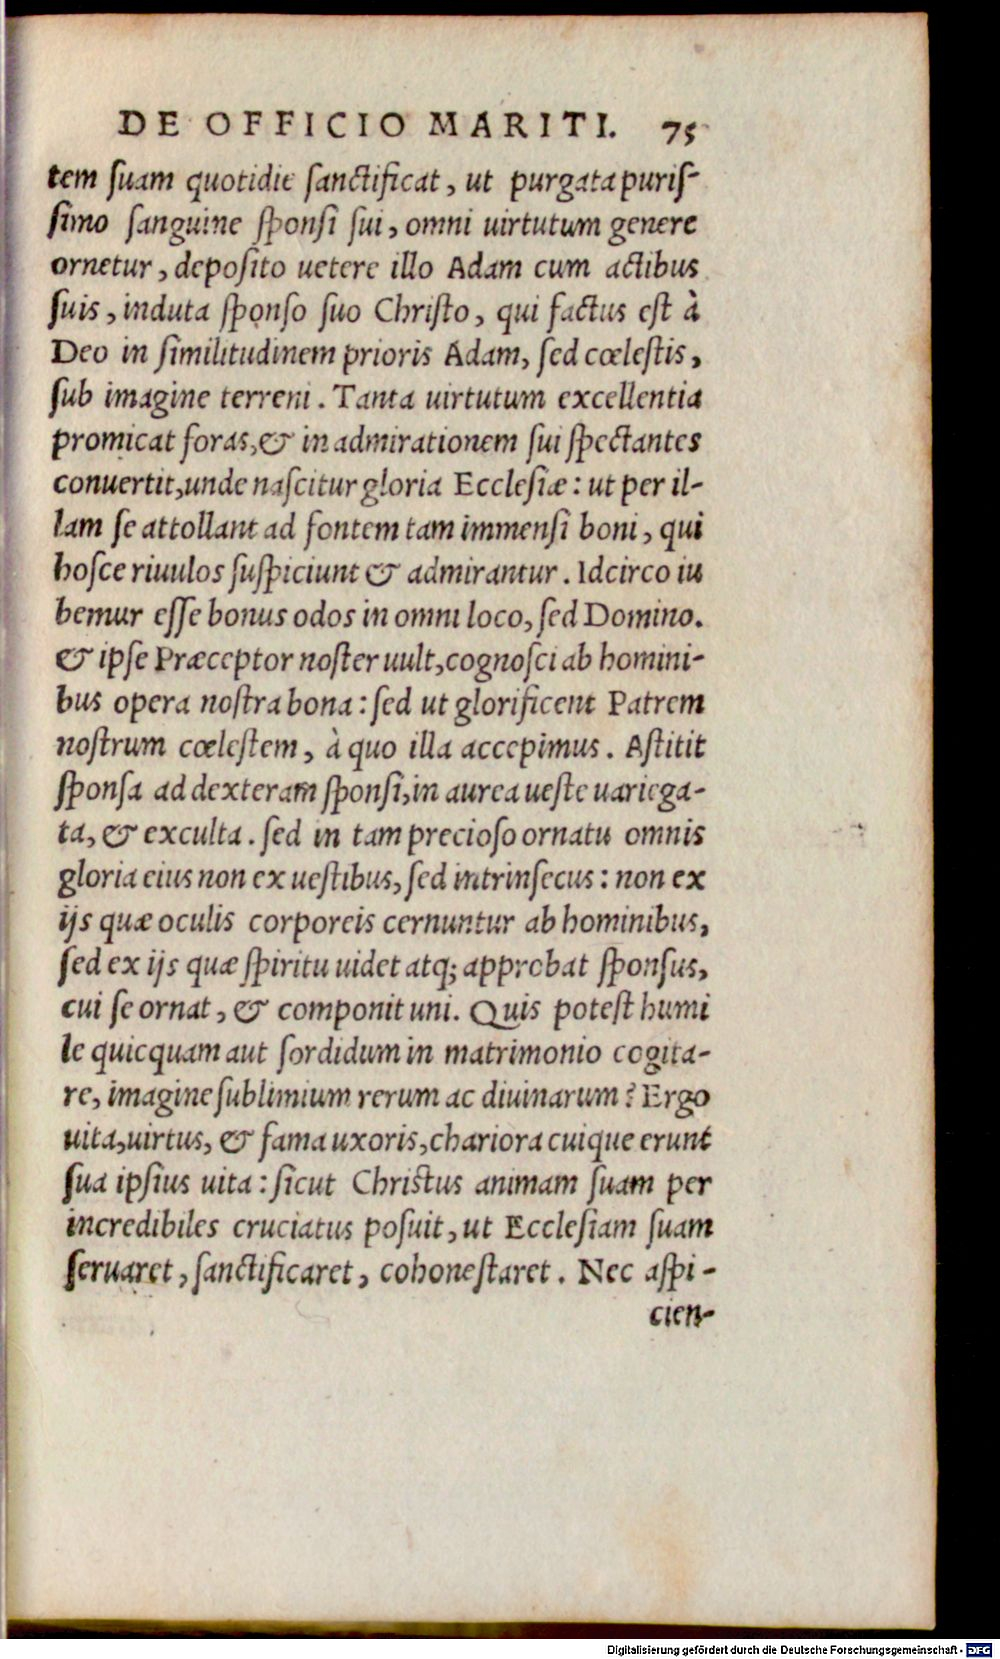 DE OFFICIO MARITI. 75
tem ſuam quotidie ſanctificat, ut purgata puriſ-
ſimo ſanguine ſponſi ſui, omni uirtutum genere
ornetur, depoſito uetere illo Adam cum actibus
ſuis, induta ſponſo ſuo Chriſto, qui factus eſt à
Deo in ſimilitudinem prioris Adam, ſed cœleſtis,
ſub imagine terreni. Tanta uirtutum excellentia
promicat foras, & in admirationem ſui ſpectantes
conuertit, unde naſcitur gloria Eccleſiæ: ut per il-
lam ſe attollant ad fontem tam immenſi boni, qui
hoſce riuulos ſuſpiciunt & admirantur. Idcirco iu
bemur eſſe bonus odos in omni loco, ſed Domino.
& ipſe Præceptor noſter uult, cognoſci ab homini-
bus opera noſtra bona: ſed ut glorificent Patrem
noſtrum cœleſtem, à quo illa accepimus. Aſtitit
ſponſa ad dexteram ſponſi, in aurea ueſte uariega-
ta, & exculta. ſed in tam precioſo ornatu omnis
gloria eius non ex ueſtibus, ſed intrinſecus: non ex
ijs quæ oculis corporeis cernuntur ab hominibus,
ſed ex ijs quæ ſpiritu uidet atq; approbat ſponſus,
cui ſe ornat, & componit uni. Quis poteſt humi
le quicquam aut ſordidum in matrimonio cogita-
re, imagine ſublimium rerum ac diuinarum? Ergo
uita, uirtus, & fama uxoris, chariora cuique erunt
ſua ipſius uita: ſicut Chriſtus animam ſuam per
incredibiles cruciatus poſuit, ut Eccleſiam ſuam
ſeruaret, ſanctificaret, cohoneſtaret. Nec aſpi-
cien-
Digitalisierung gefördert durch die Deutsche Forschungsgemeinschaft - DFG